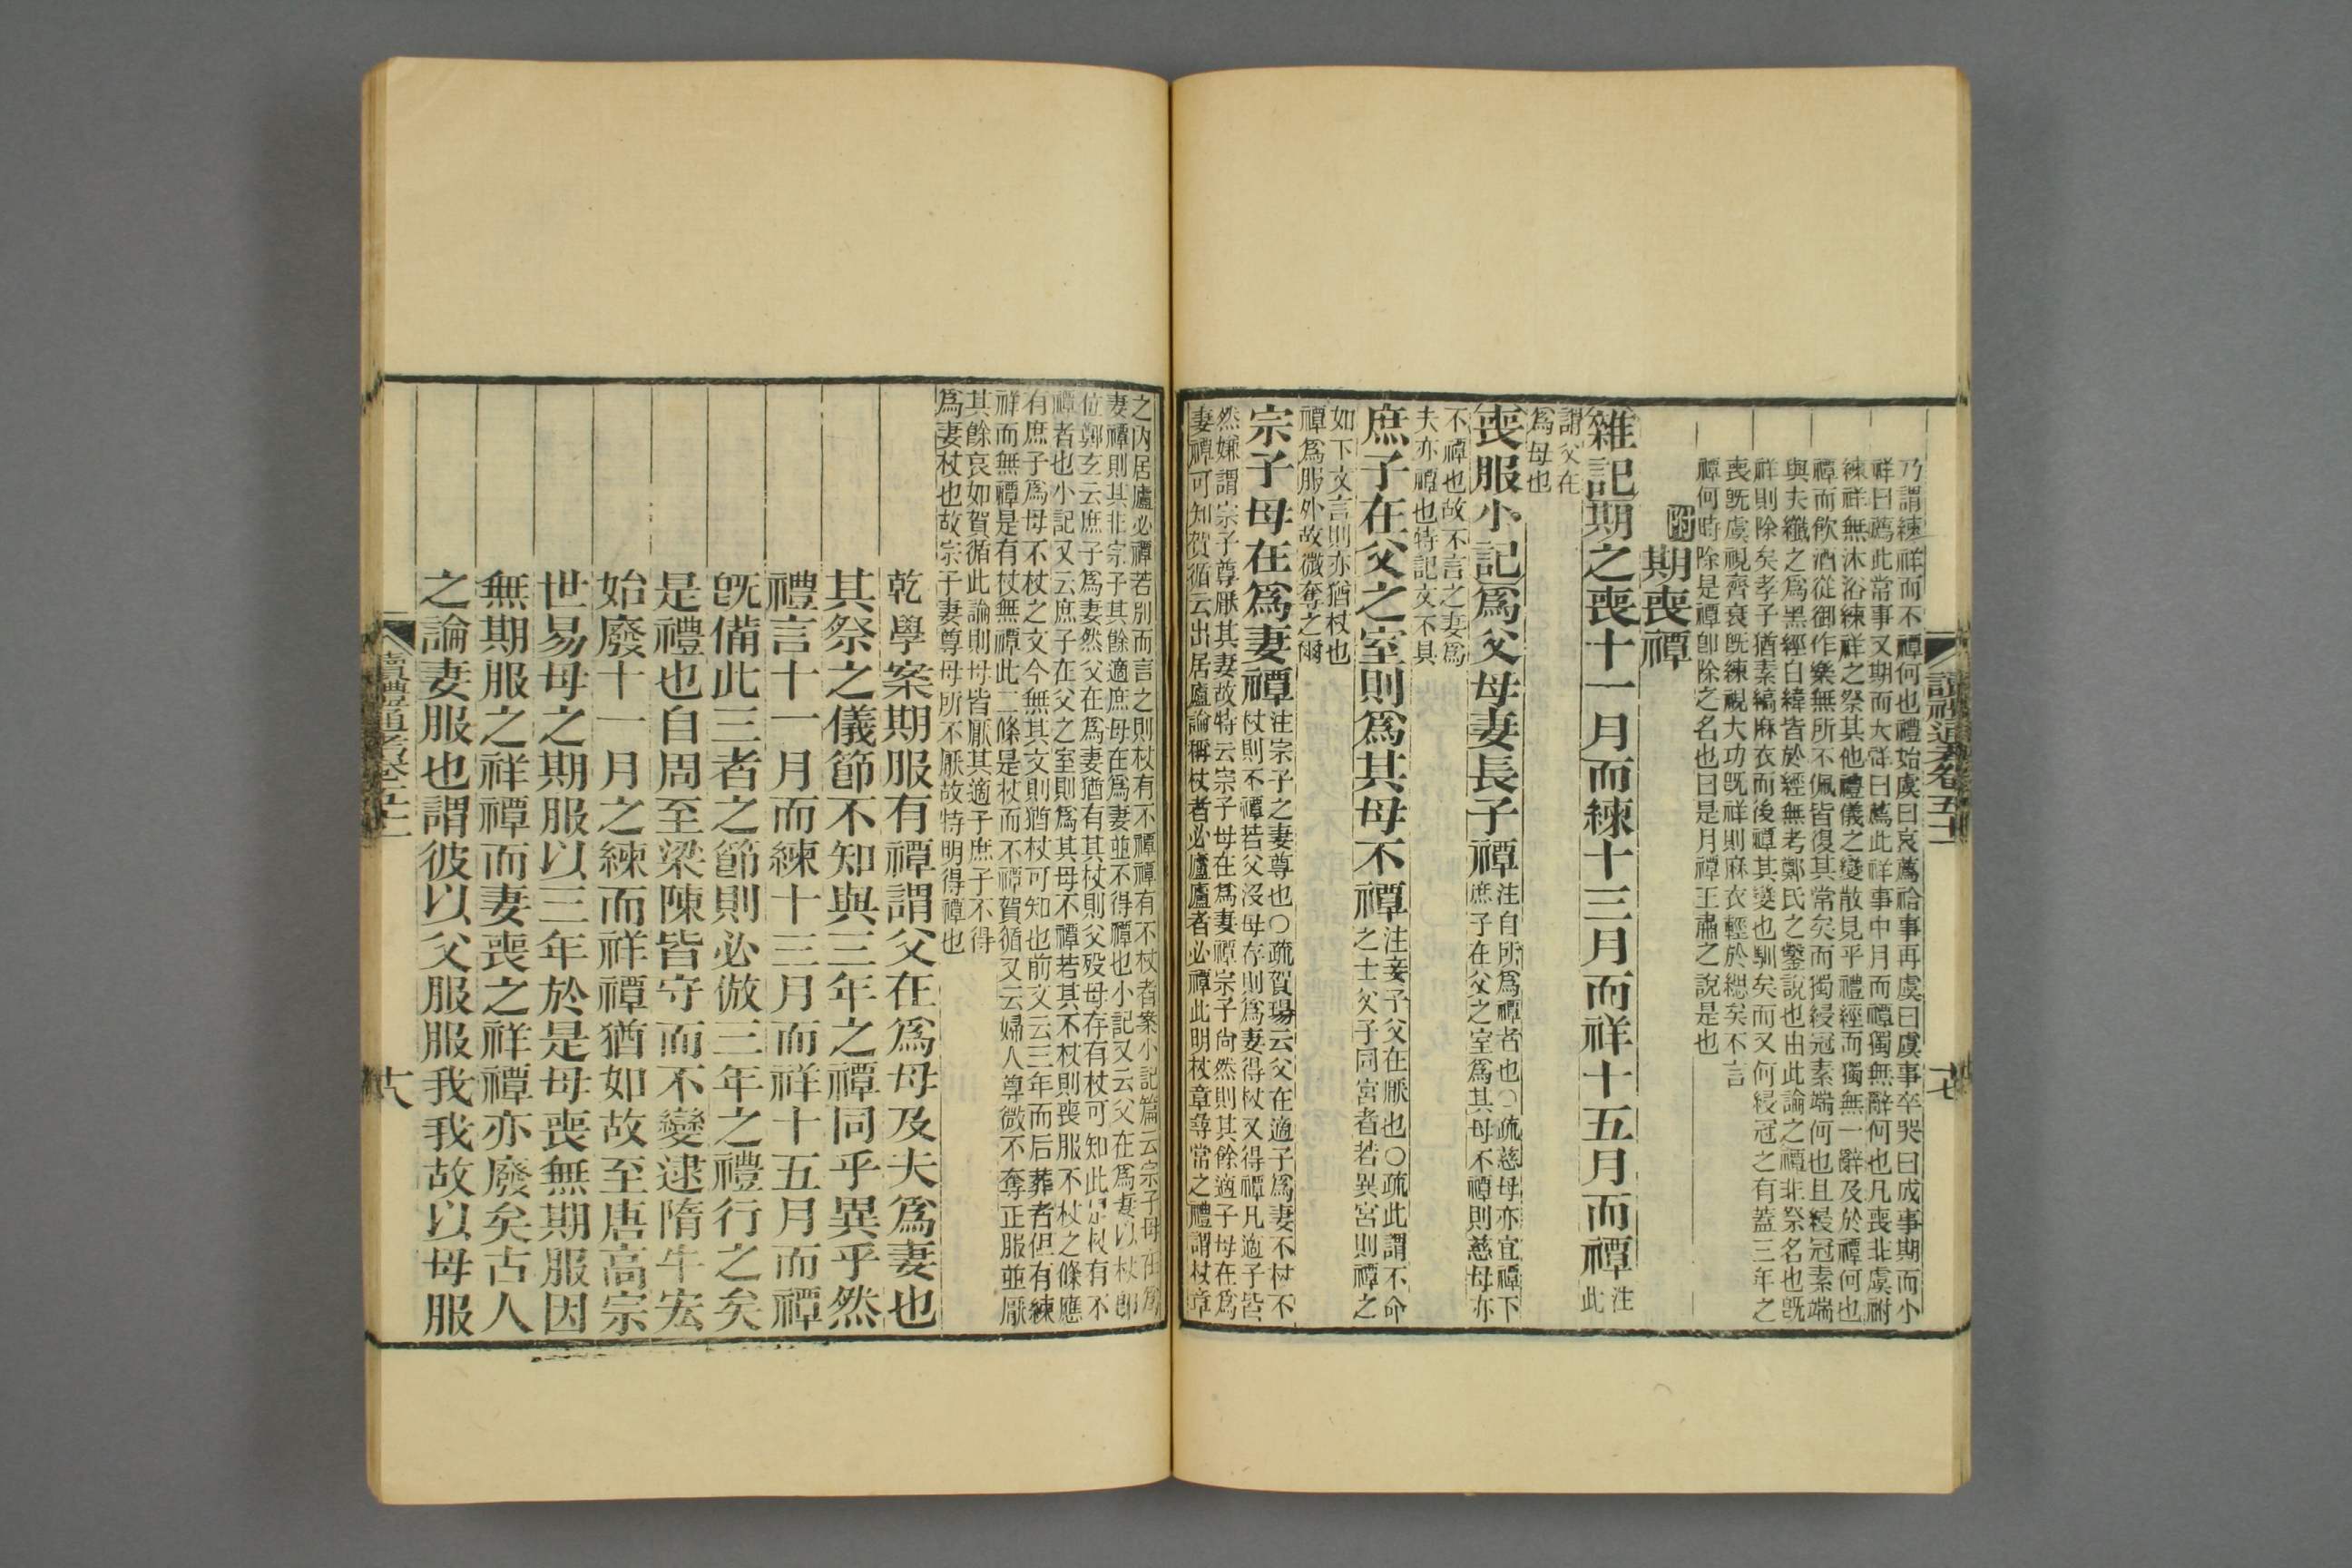 乃謂練祥而不禫何也禮始虞曰哀薦祫事再虞曰虞事卒哭曰成事期而小
祥曰薦此常事又期而大祥曰薦此祥事中月而禫獨無辭何也凡喪非虞祔
練祥無沐浴練祥之祭其他禮儀之變散見乎禮經而獨無一辭及於禫何也
禫而飲酒從御作樂無所不佩皆復其常矣而獨綅冠素端何也且綅冠素端
與夫纖之爲黑經白緯皆於經無考鄭氏之鑿說也由此論之禫非祭名也旣
祥則除矣孝子猶素縞麻衣而後禫其變也馴矣而又何綅冠之有蓋三年之
喪旣虞視齊衰旣練視大功旣祥則麻衣輕於緦矣不言
禫何時除是禫卽除之名也曰是月禫王肅之說是也
附期喪禫
雜記期之喪十一月而練十三月而祥十五月而禫注此
謂父在
爲母也
喪服小記爲父母妻長子禫注自所爲禫者也○疏慈母亦宜禫下
庶子在父之室爲其母不禫則慈母亦
不禫也故不言之妻爲
夫亦禫也特記文不具
庶子在父之室則爲其母不禫注妾子父在厭也○疏此謂不命
之士父子同宮者若異宮則禫之
如下文言則亦猶杖也
禫爲服外故微奪之爾
宗子母在爲妻禫注宗子之妻尊也○疏賀瑒云父在適子爲妻不杖不
杖則不禫若父沒母存則爲妻得杖又得禫凡適子皆
然嫌謂宗子尊厭其妻故特云宗子母在爲妻禫宗子尙然則其餘適子母在爲
妻禫可知賀循云出居廬論稱杖者必廬廬者必禫此明杖章尋常之禮謂杖章
之內居廬必禫若別而言之則杖有不禫禫有不杖者案小記篇云宗子母在爲
妻禫則其非宗子其餘適庶母在爲妻並不得禫也小記又云父在爲妻以杖卽
位鄭玄云庶子爲妻然父在爲妻猶有其杖則父歿母存有杖可知此是杖有不
禫者也小記又云庶子在父之室則爲其母不禫若其不杖則喪服不杖之條應
有庶子爲母不杖之文今無其文則猶杖可知也前文云三年而后葬者但有練
祥而無禫是有杖無禫此二條是杖而不禫賀循又云婦人尊微不奪正服並厭
其餘哀如賀循此論則母皆厭其適子庶子不得
爲妻杖也故宗子妻尊母所不厭故特明得禫也
乾學案期服有禫謂父在爲母及夫爲妻也
其祭之儀節不知與三年之禫同乎異乎然
禮言十一月而練十三月而祥十五月而禫
旣備此三者之節則必倣三年之禮行之矣
是禮也自周至梁陳皆守而不變逮隋牛宏
始廢十一月之練而祥禫猶如故至唐高宗
世易母之期服以三年於是母喪無期服因
無期服之祥禫而妻喪之祥禫亦廢矣古人
之論妻服也謂彼以父服服我我故以母服
讀禮通考卷五十二
十七
讀禮通考卷五十二
十八